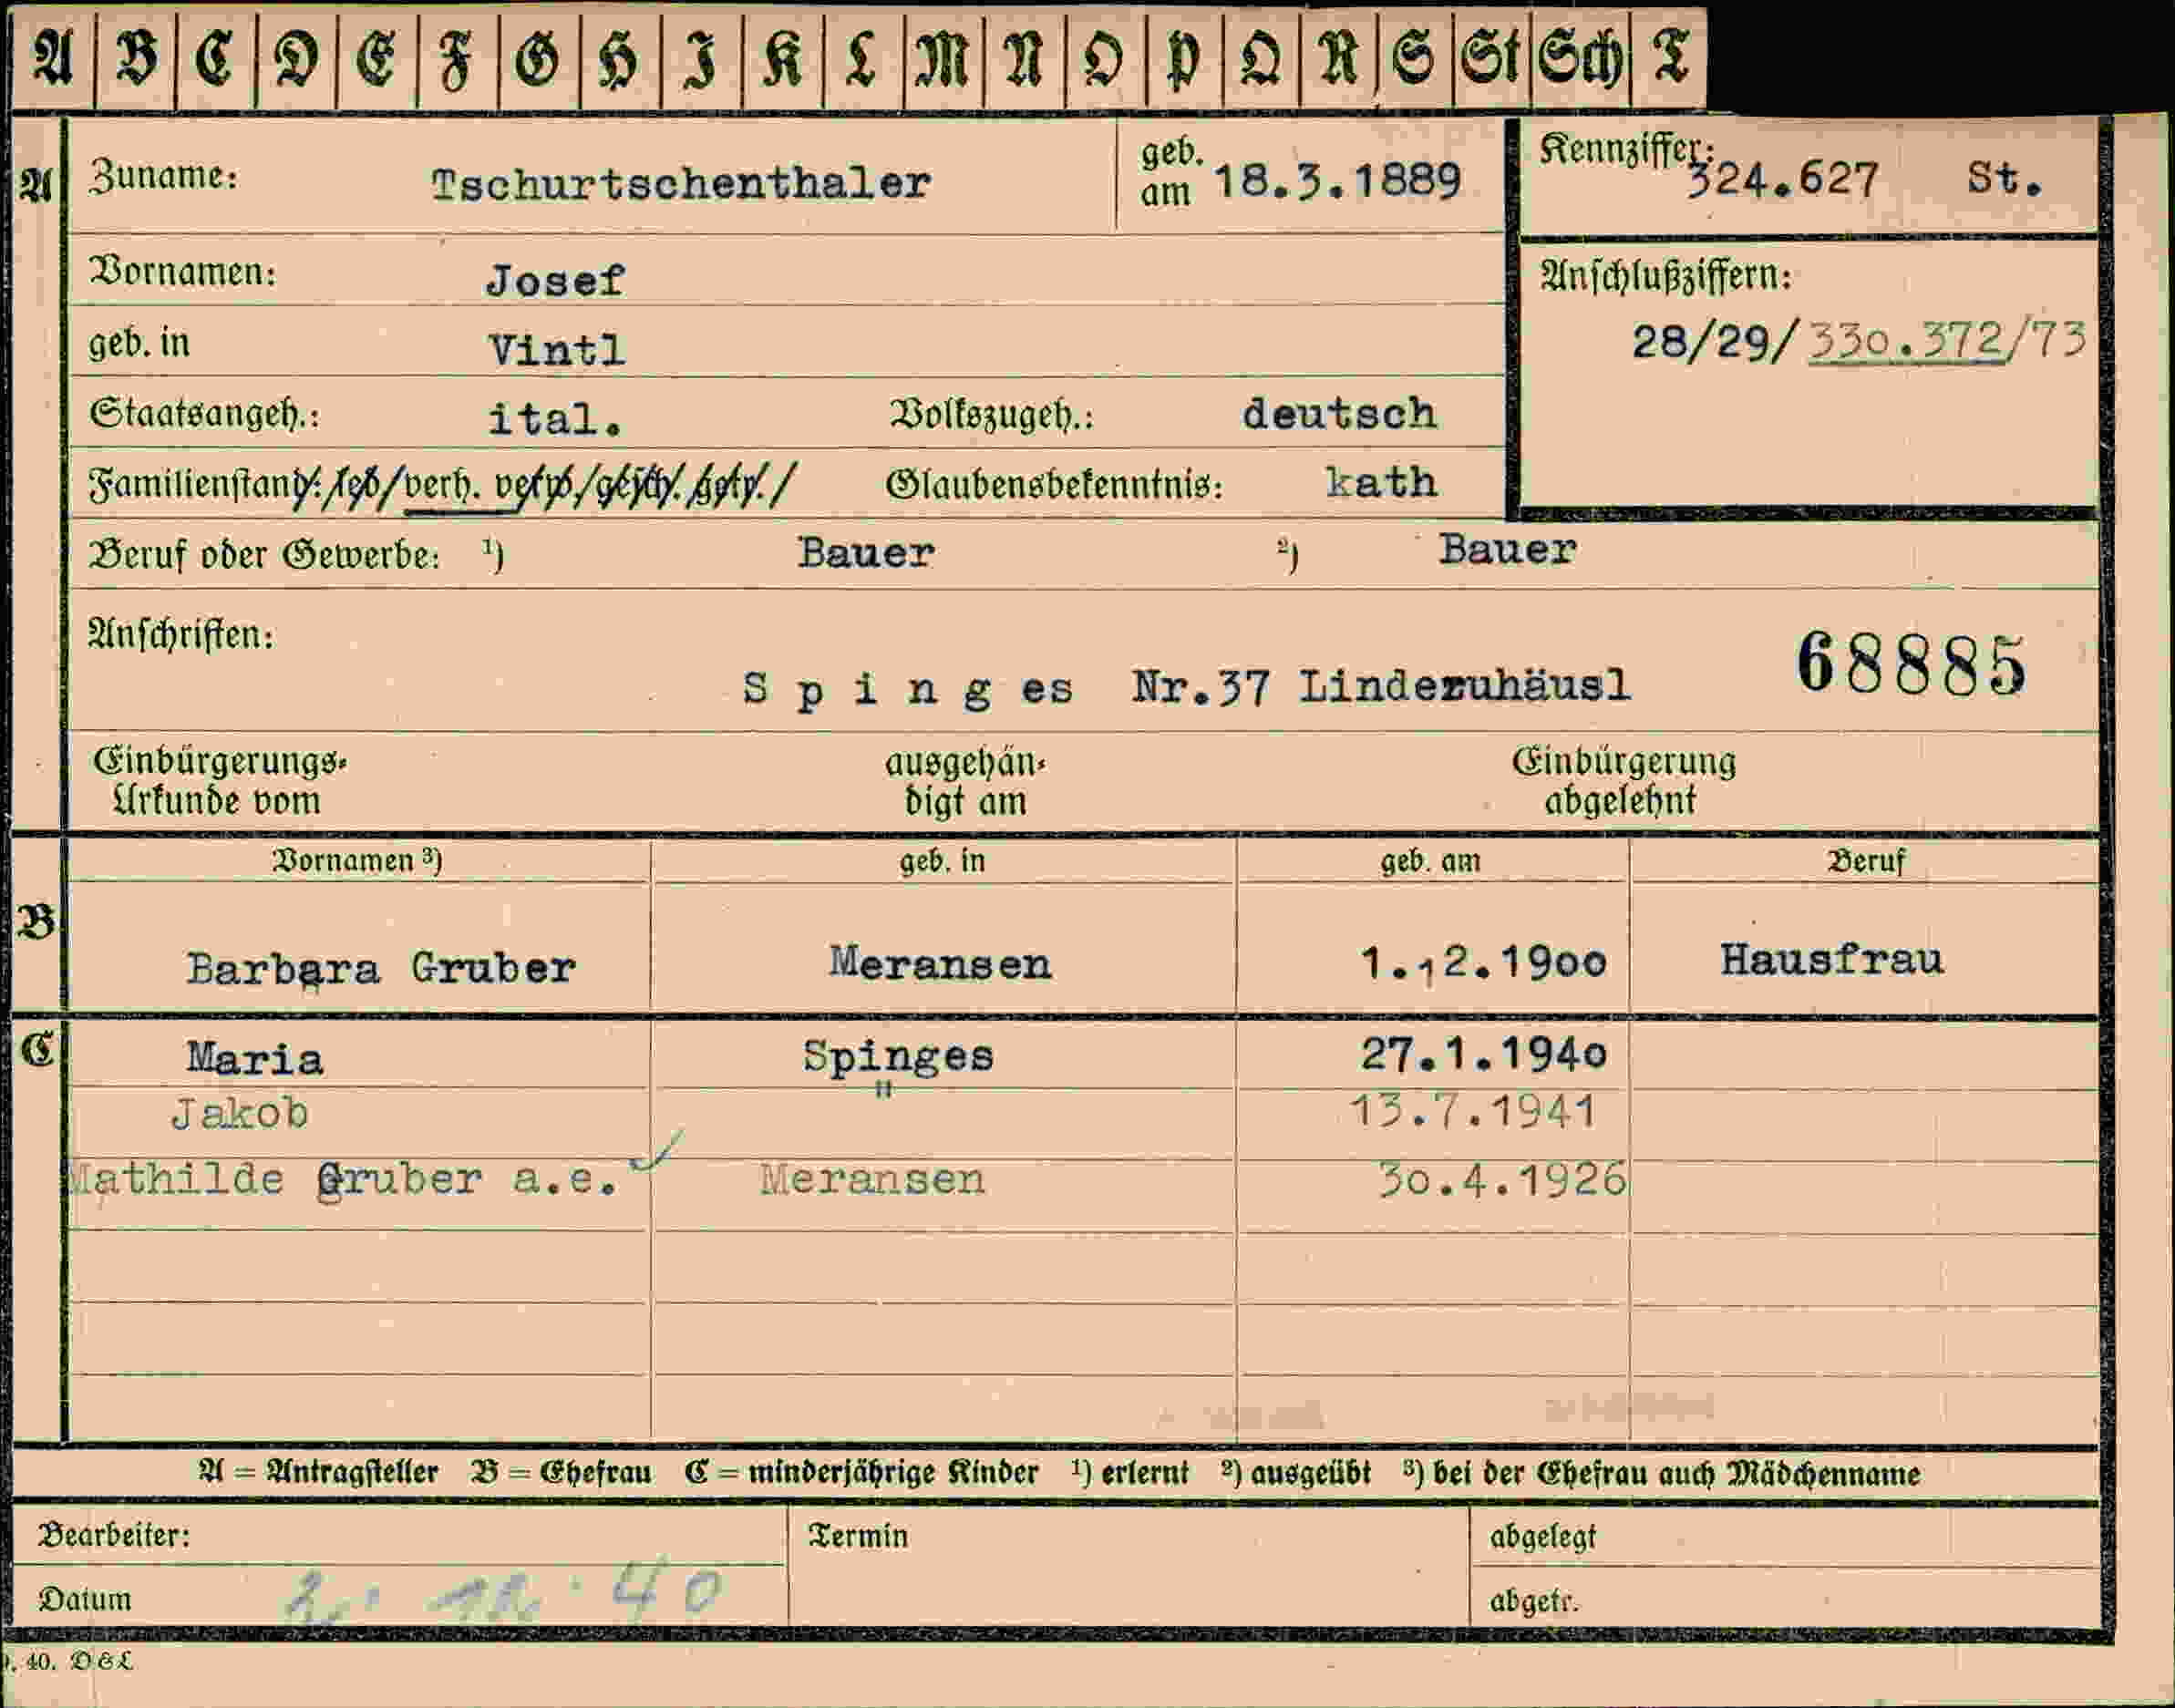 A B C D E F G H I K L M N O P Q R S St Sch T
A Zuname: Tschurtschenthaler geb. am 18.3.1889 Kennziffer: 324.627 St.
Vornamen: Josef Anschlußziffern:
geb. in Vintl 28/29/330.372/73
Staatsangeh.: ital. Volkszugeh.: deutsch
Familienstand: led/verh. verw./gesch. Glaubensbekenntnis: kath
Beruf oder Gewerbe: 1) Bauer 2) Bauer
Anschriften: 68885
S p i n g es Nr.37 Linderuhäusl
Einbürgerungs- ausgehän- Einbürgerung
Urkunde vom digt am abgelehnt
Vornamen 3) geb. in geb. am Beruf
B Barbara Gruber Meransen 1.12.1900 Hausfrau
C Maria Spinges 27.1.1940
Jakob " 13.7.1941
Mathilde Gruber a.e. Meransen 30.4.1926
A = Antragsteller B = Ehefrau C = minderjährige Kinder 1) erlernt 2) ausgeübt 3) bei der Ehefrau auch Mädchenname
Bearbeiter: Termin abgelegt
Datum 40 abgetr.
40. D & L